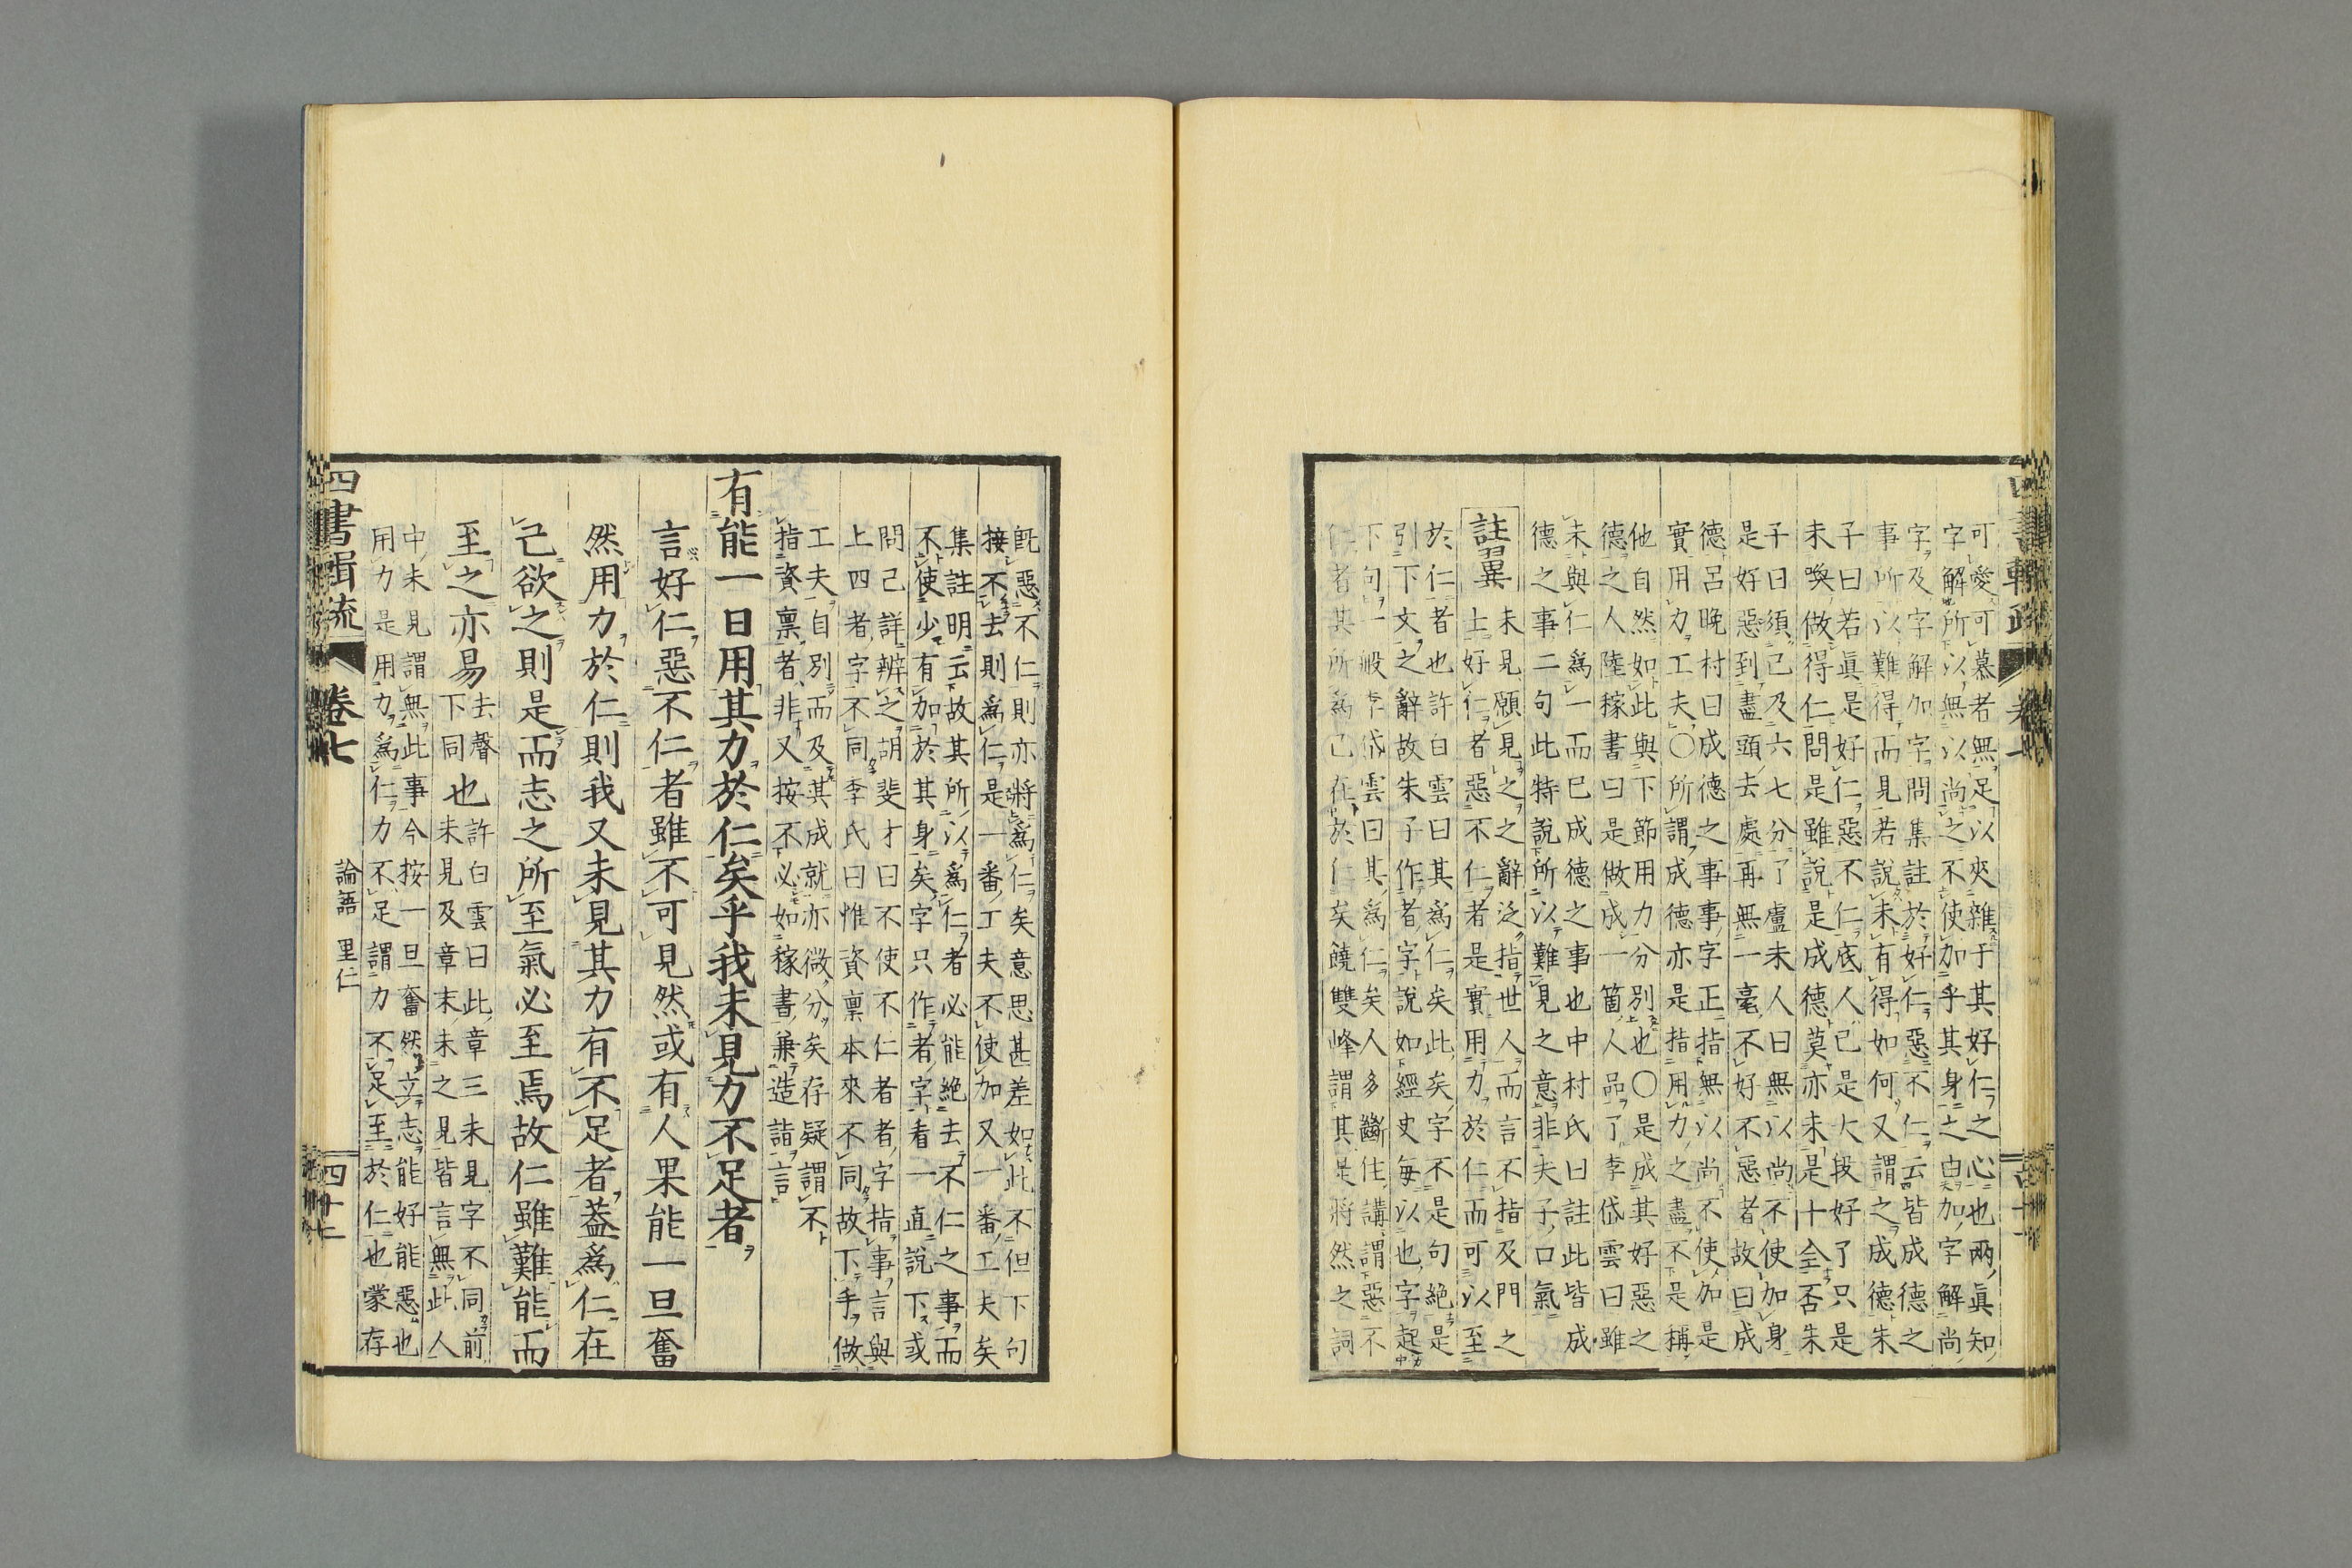 可愛可慕者無足以夾雜于其好仁之心也兩眞知
字解所以無以尚之不使加乎其身之白加字解尚
字及字解加字問集註於好仁惡不仁云皆成德之
事所以難得而見若說未有得如何又謂之成德朱
子曰若眞是好仁惡不仁底人已是大段好了只是
未喚做得仁問是雖說是成德莫亦未是十全否朱
子曰須已及六七分了盧未人曰無以尚不使加身
是好惡到盡頭去處再無一毫不好不惡者故曰成
德呂晚村曰成德之事事字正指無以尚不使加是
實用力工夫〇所謂成德亦是指用力之盡不是稱
他自然如此與下節用力分別也〇是成其好惡之
德之人陸稼書曰是做成一箇人品了李岱雲曰雖
未與仁爲一而已成德之事也中村氏曰註此皆成
德之事二句此特說所以難見之意非夫子口氣
註翼
未見願見之之辭泛指世人而言不指及門之
士好仁者惡不仁者是實用力於仁而可以至
於仁者也許白雲曰其爲仁矣此矣字不是句絕是
引下文之辭故朱子作者字說如經史每以也字起
下句一般李岱雲曰其爲仁矣人多斷住講謂惡不
仁者其所爲已在於仁矣饒雙峰謂其是將然之詞
既惡不仁則亦將爲仁矣意思甚差如此不但下句
接不去則爲仁是一番工夫不使加又一番工夫矣
集註明云故其所以爲仁者必能絕去不仁之事而
不使少有加於其身矣字只作者字看一直說下或
問已詳辨之胡斐才曰不使不仁者者字指事言與
上四者字不同李氏曰惟資稟本來不同故下手做
工夫自別而及其成就亦微分矣存疑謂不
指資稟者非又按不必如稼書兼造詣言
有能一日用其力於仁矣乎我未見力不足者
言好仁惡不仁者雖不可見然或有人果能一旦奮
然用力於仁則我又未見其力有不足者蓋爲仁在
己欲之則是而志之所至氣必至焉故仁雖難能而
至之亦易去聲下同也許白雲曰此章三未見字不同前
未見及章末未之見皆言無此人
中未見謂無此事今按一旦奮然立志能好能惡也
用力是用力爲仁力不足謂力不足至於仁也蒙存
四書輯疏
卷七
論語 里仁
四十七